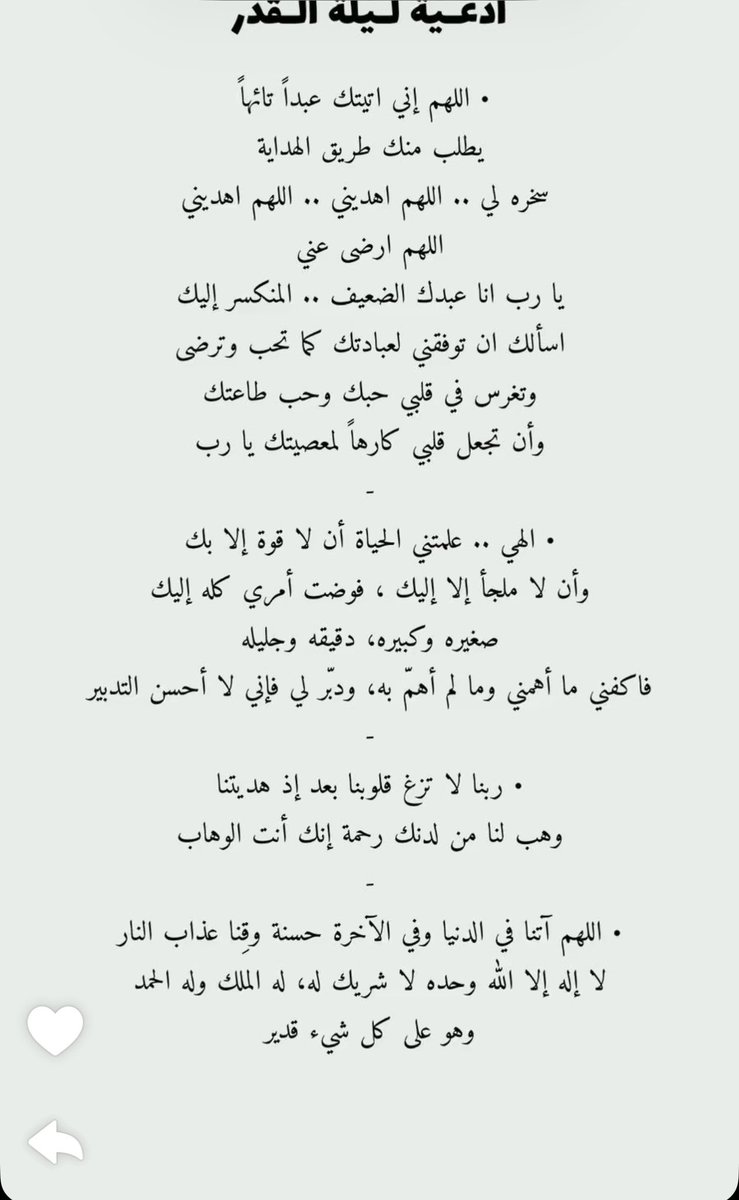 أدعـية لـيلة الـقدر
• اللهم إني اتيتك عبداً تائهاً
يطلب منك طريق الهداية
سخره لي .. اللهم اهديني .. اللهم اهديني
اللهم ارضى عني
يا رب انا عبدك الضعيف .. المنكسر إليك
اسألك ان توفقني لعبادتك كما تحب وترضى
وتغرس في قلبي حبك وحب طاعتك
وأن تجعل قلبي كارهاً لمعصيتك يا رب
-
• الهي .. علمتني الحياة أن لا قوة إلا بك
وأن لا ملجأ إلا إليك ، فوضت أمري كله إليك
صغيره وكبيره، دقيقه وجليله
فاكفني ما أهمني وما لم أهمّ به، ودبّر لي فإني لا أحسن التدبير
-
• ربنا لا تزغ قلوبنا بعد إذ هديتنا
وهب لنا من لدنك رحمة إنك أنت الوهاب
-
• اللهم آتنا في الدنيا وفي الآخرة حسنة وقِنا عذاب النار
لا إله إلا الله وحده لا شريك له، له الملك وله الحمد
وهو على كل شيء قدير